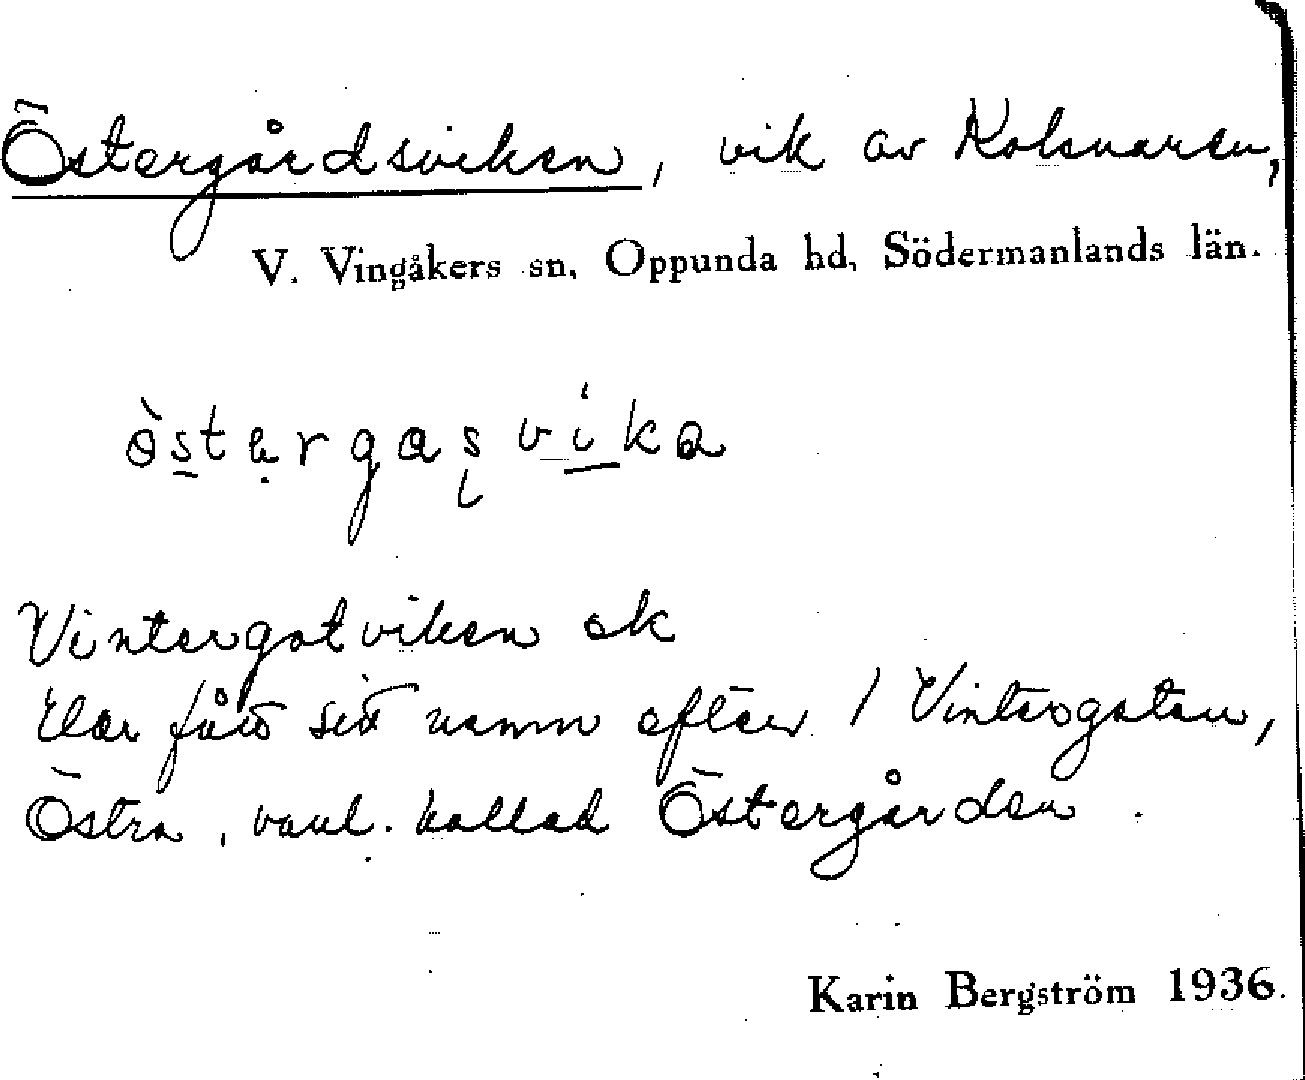 Östergårdsviken, vik av Kolsnaren,
V. Vingåkers sn, Oppunda hd, Södermanlands län.
östergasvika
Vintergatviken ek
Har fått sitt namn efter / Vintergatan,
Östra, vanl. kallad Östergården.
Karin Bergström 1936.